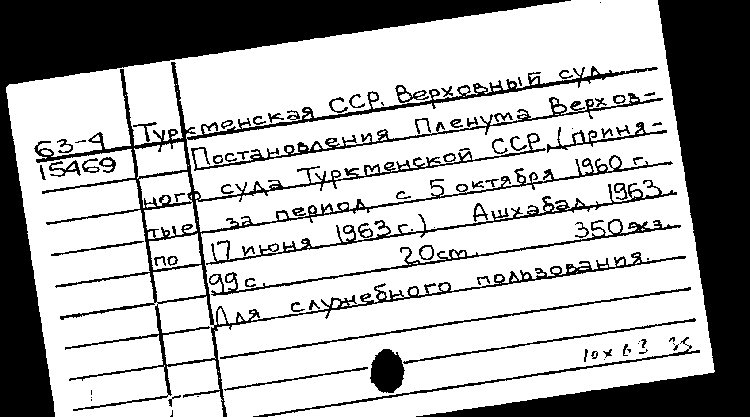 63-4
15469
Туркменская ССР. Верховный суд.
Постановления Пленума Верхов-
ного суда Туркменской ССР, (приня-
тые за период с 5 октября 1960 г.
по 17 июня 1963 г.) Ашхабад, 1963.
99 с. 20 см. 350 экз.
Для служебного пользования.
10 x 63 35